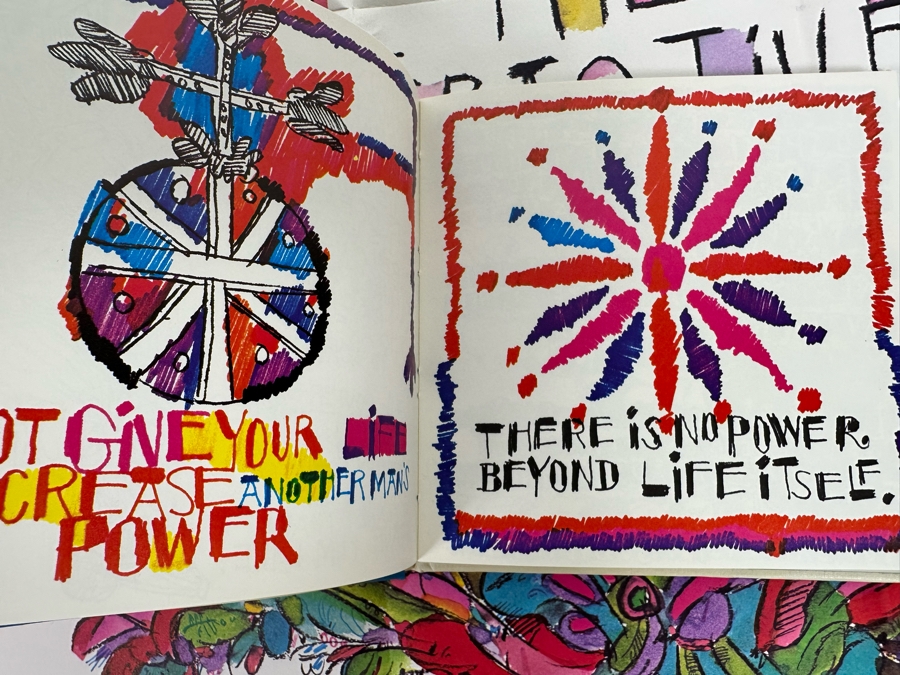 GiVE YOUR LiFE
ANOTHER MAN'S
POWER
THERE iS NO POWER
BEYOND LiFE iTSELF.